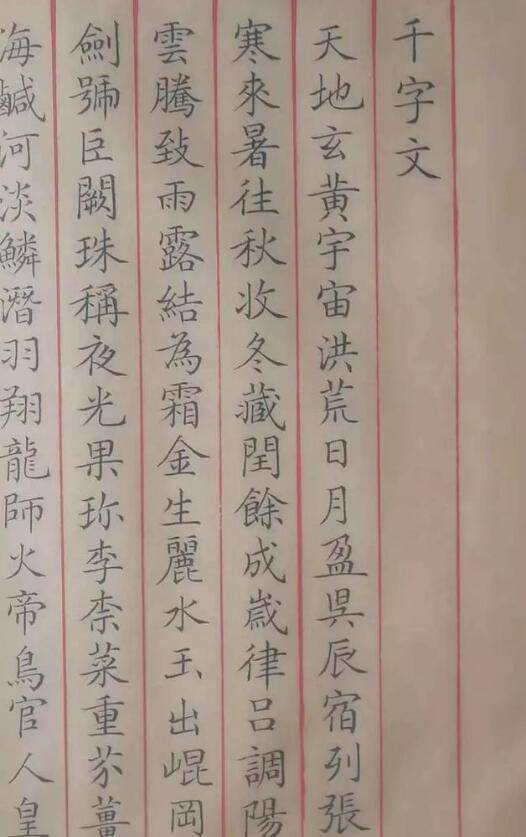 千字文
天地玄黄宇宙洪荒日月盈昃辰宿列張
寒來暑往秋收冬藏閏餘成歲律吕調陽
雲騰致雨露結為霜金生麗水玉出崐岡
劍號巨闕珠稱夜光果珎李柰菜重芥薑
海鹹河淡鱗潛羽翔龍師火帝鳥官人皇